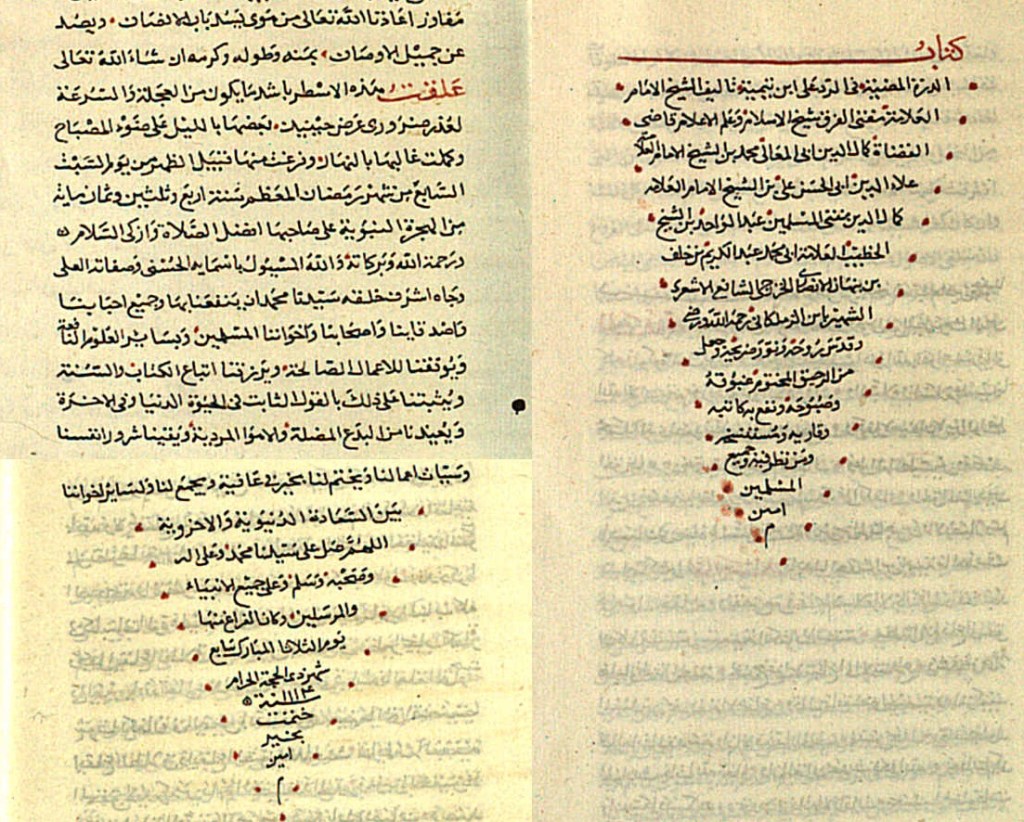 كتاب
الدرة المضية في الرد على ابن تيمية تاليف الشيخ الامام
العلامة مفتي الفرق شيخ الاسلام وعلم الاعلام قاضي
القضاة كمال الدين ابي المعالي محمد بن الشيخ الامام العلامة
علاء الدين ابي الحسن علي بن الشيخ الامام العلامه
كمال الدين مفتي المسلمين عبد الواحد بن الشيخ
الخطيب العلامة ابي محمد عبد الكريم بن خلف
بن نبهان الانصاري الخزرجي الشافعي الاشعري
الشهير بابن الزملكاني رحمه الله ورضي
وقدس روحه ونور ضريحه وجعل
من الرحيق المختوم غبوقه
وصبوحه ونفع ببركاته
وقاريه ومستنسخه
ومن نظر فيه وجميع
المسلمين
امين
م
مفاوز اعاذنا الله تعالى من هوى يسد باب الانصاف ويصد
عن جميل الاوصاف بمنه وطوله وكرمه ان شاء الله تعالى
علقت هذه الاسطر باشد ما يكون من العجلة والسرعة
لعذر ضروري عرض حينئذ بعضها بالليل على ضوء المصباح
وكملت غالبها بالنهار وفرغت منها قبيل الظهر من يوم السبت
السابع من شهر رمضان المعظم سنة اربع وثلثين وثمان ماية
من الهجرة النبوية على صاحبها افضل الصلاة وازكى السلام
ورحمة الله وبركاته والله المسيول باسمايه الحسنى وصفاته العلى
وجاه اشرف خلقه سيدنا محمد ان ينفعنا بها وجميع احبابنا
واصدقاينا واصحابنا واخواننا المسلمين وبساير العلوم النافعة
ويوفقنا للاعمال الصالحة ويرزقنا اتباع الكتاب والسنة
ويثبتنا على ذلك بالقول الثابت في الحيوة الدنيا وفي الاخرة
ويعيذنا من البدع المضلة والاهوا المردية ويقينا شرور انفسنا
وسيات اعمالنا ويختم لنا بخير في عافية ويجمع لنا ولساير اخواننا
بين السعادة الدنيوية والاخروية
اللهم صل على سيدنا محمد وعلى اله
وصحبه وسلم وعلى جميع الانبياء
والمرسلين وكان الفراغ منها
يوم الثلاثا المبارك سابع
شهر ذي الحجة الحرام
سنة ١١١٣
ختمت
بخير
امين
م